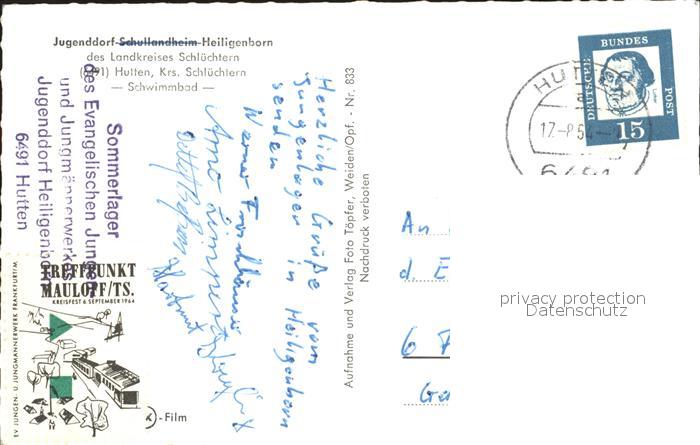 Jugenddorf-Schullandheim-Heiligenborn
des Landkreises Schlüchtern
(6491) Hutten, Krs. Schlüchtern
— Schwimmbad —
Sommerlager
des Evangelischen Jungen
und Jungmännerwerkes
Jugenddorf Heiligenborn
6491 Hutten
TREFFPUNKT
MAULOFF/TS.
KREISFEST 6. SEPTEMBER 1964
EV. JUNGEN- U. JUNGMÄNNERWERK FRANKFURT/M
-Film
Herzliche Grüße vom
Jungenlager in Heiligenborn
senden
Werner
Arno
Hartmut
Aufnahme und Verlag Foto Töpfer, Weiden/Opf. - Nr. 833
Nachdruck verboten
DEUTSCHE
BUNDES
POST
15
HUT
17.-8.64
6491
An
d. E
6 F
privacy protection
Datenschutz